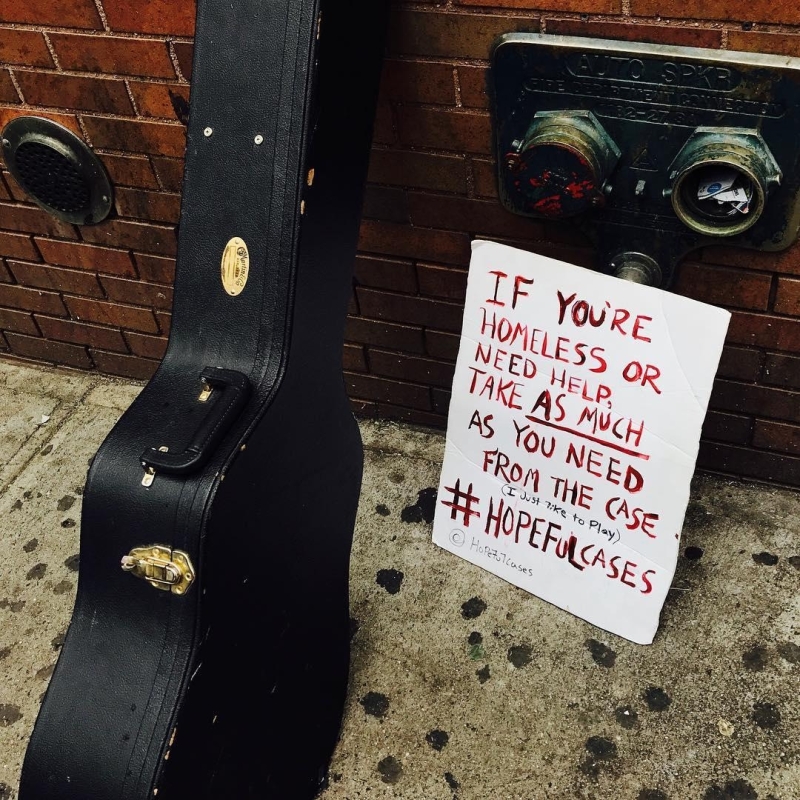 AUTO SPKR
FIRE DEPARTMENT CONNECTION
IF YOU'RE
HOMELESS OR
NEED HELP,
TAKE AS MUCH
AS YOU NEED
FROM THE CASE
(I Just like to Play)
#HOPEFULCASES
© HOPEFULCases